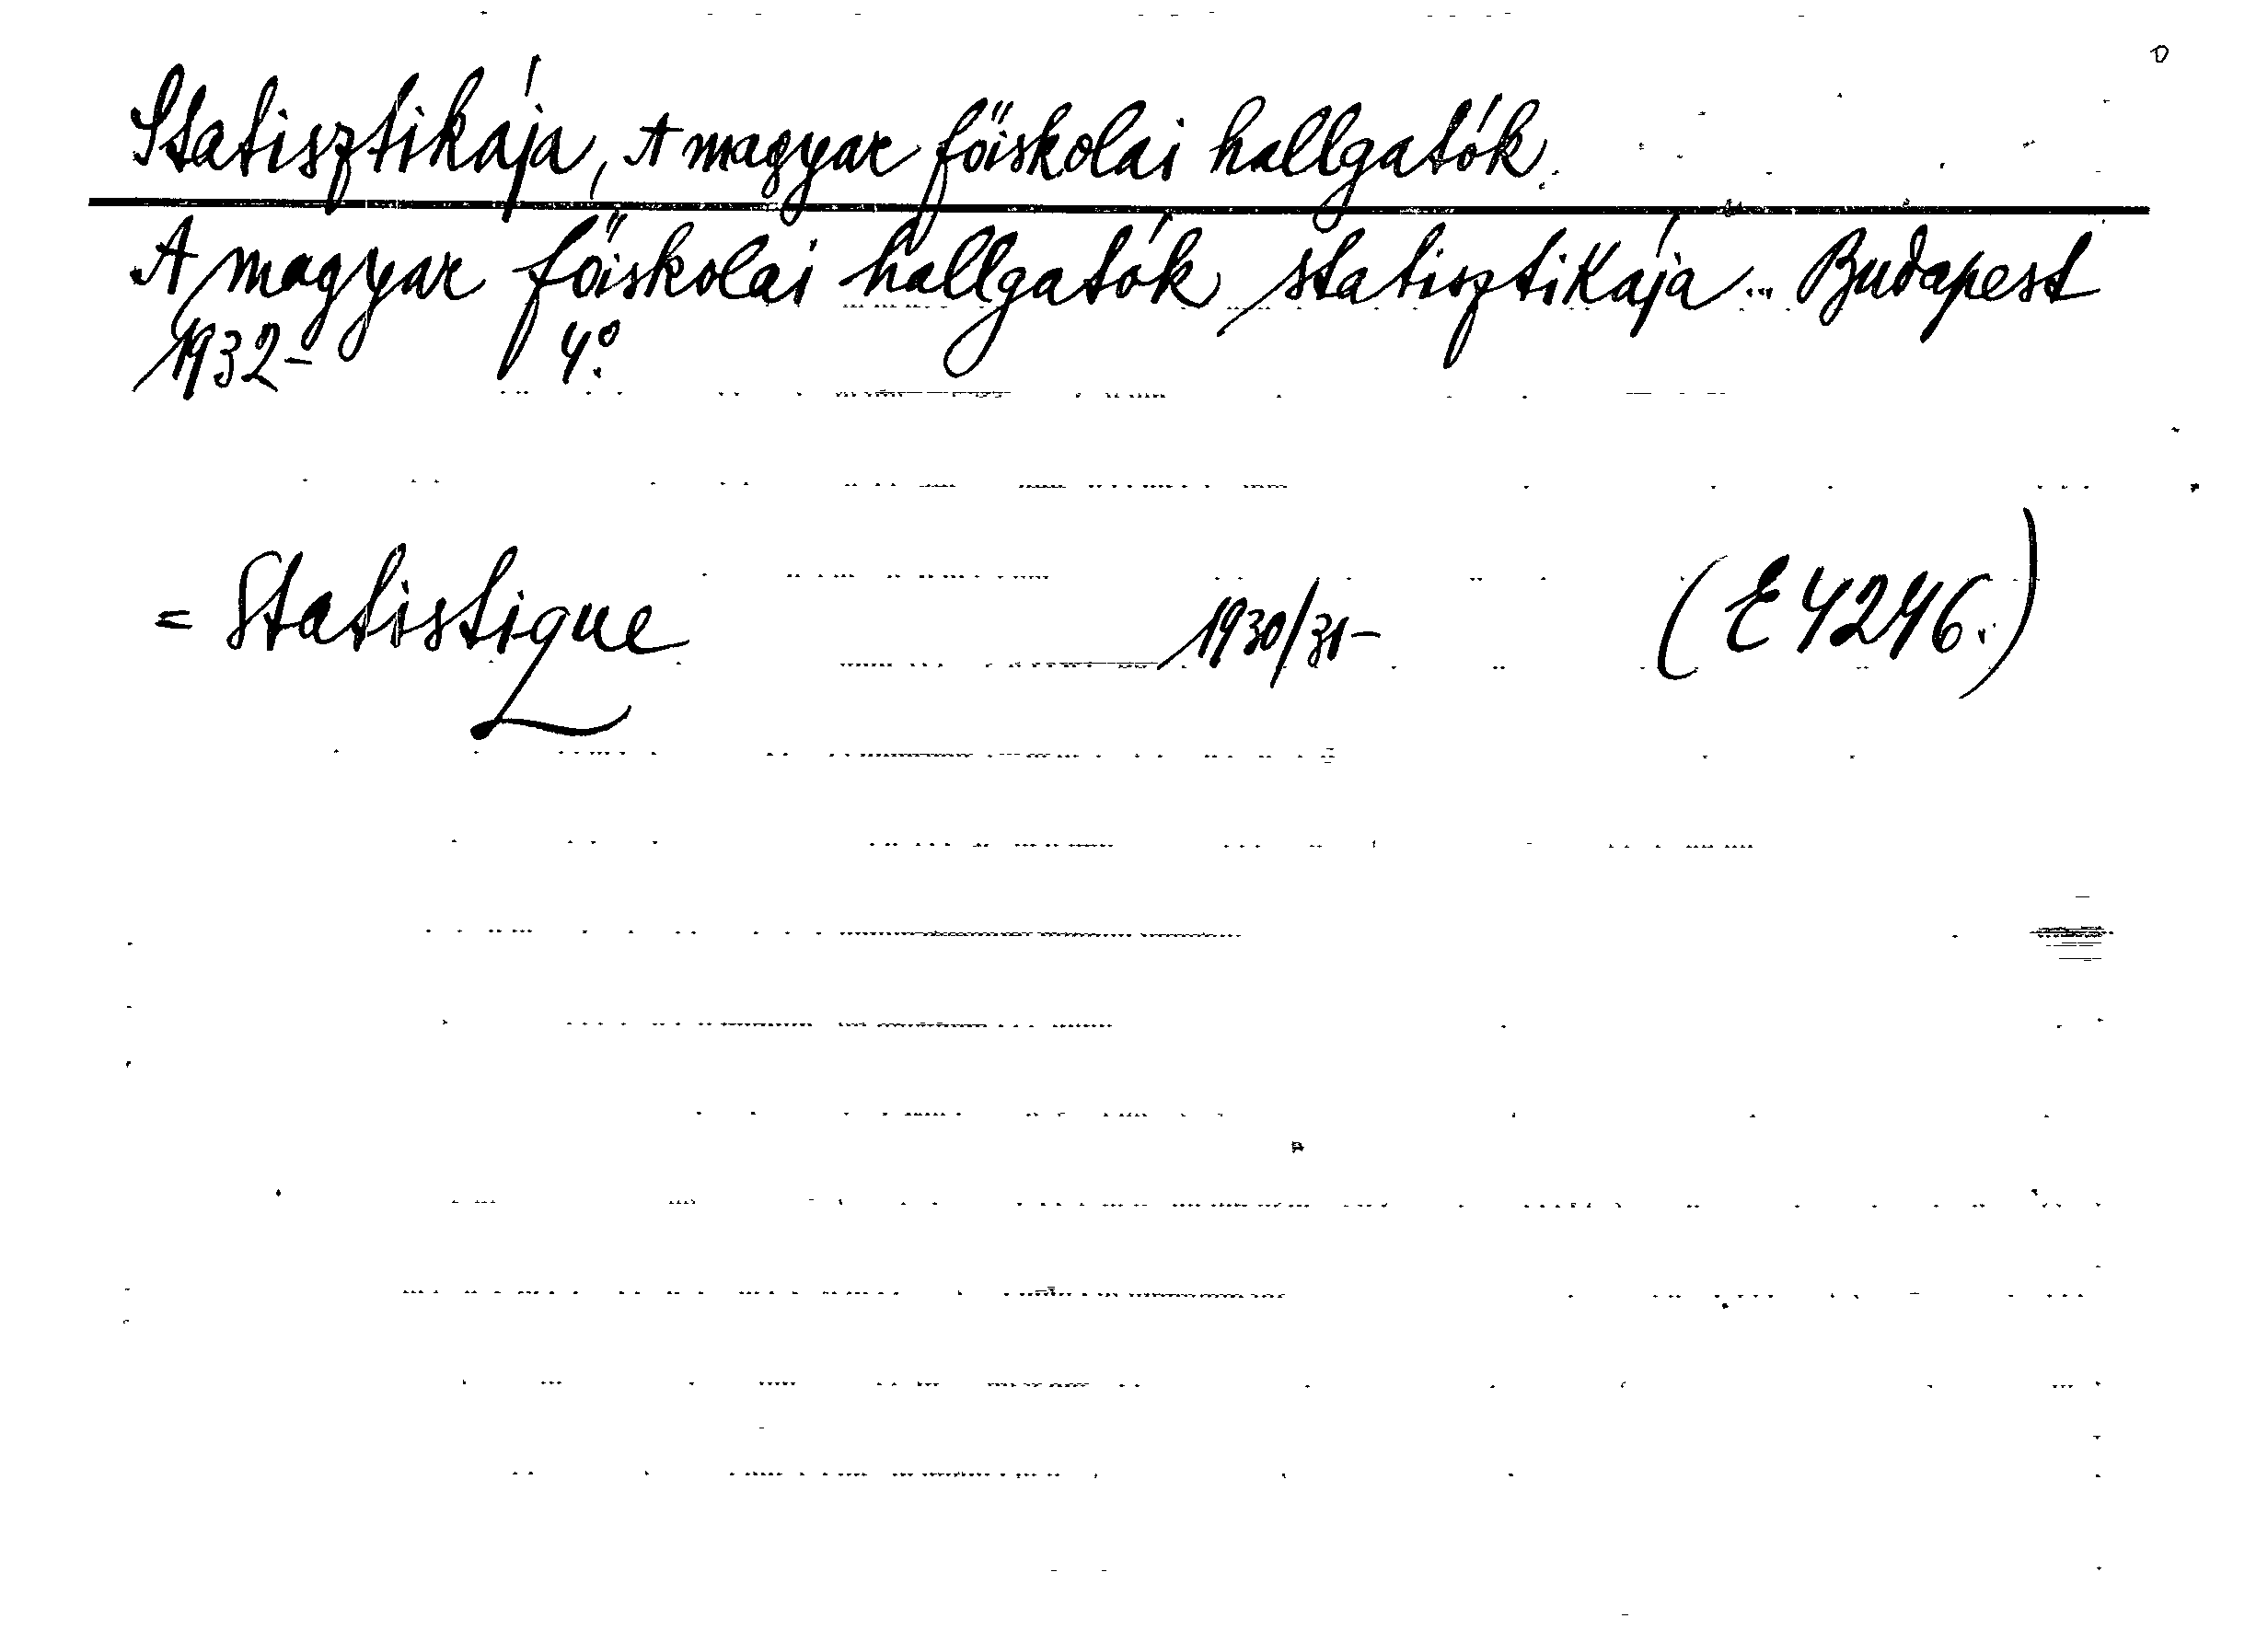 Statisztikája, A magyar főiskolai hallgatók.
A magyar főiskolai hallgatók statisztikája... Budapest
1932- 4°.
= Statistique 1930/31- (E 4246.)